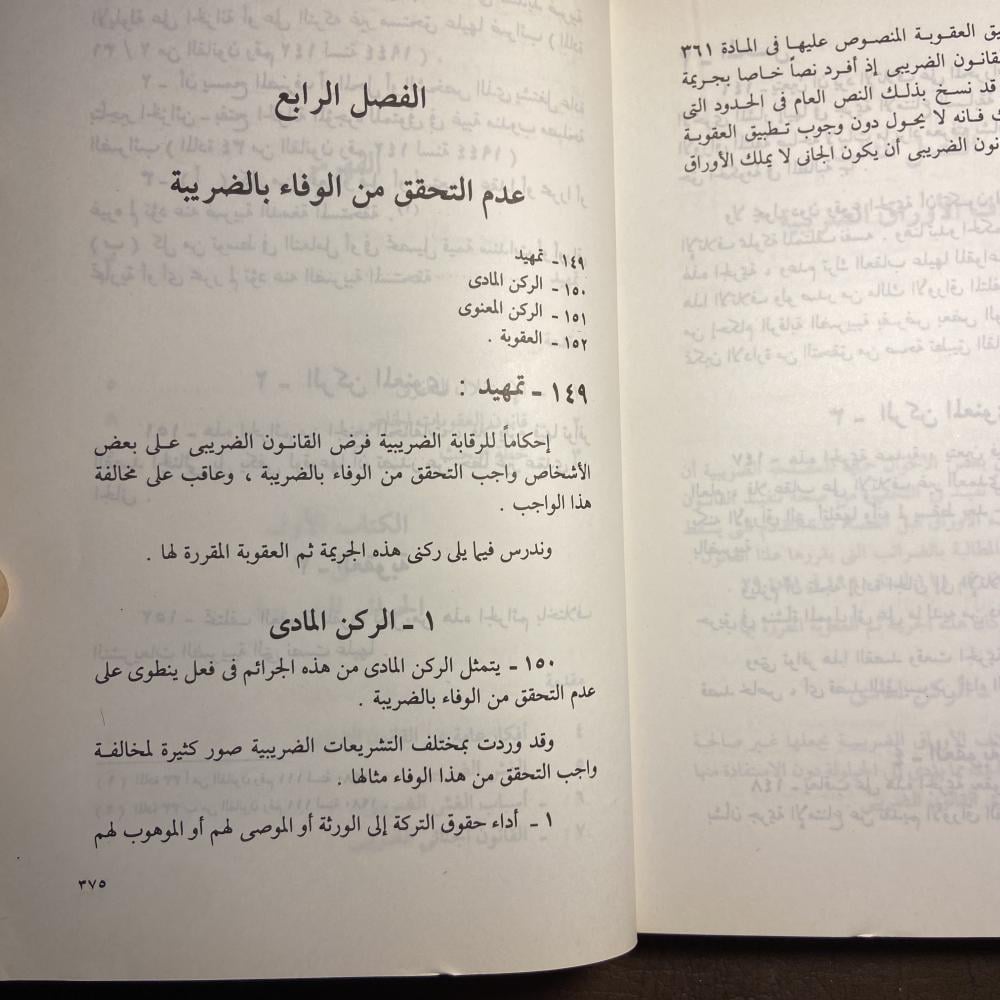 الفصل الرابع
عدم التحقق من الوفاء بالضريبة
١٤٩ - تمهيد
١٥٠ - الركن المادى
١٥١ - الركن المعنوى
١٥٢ - العقوبة .
١٤٩ - تمهيد :
إحكاماً للرقابة الضريبية فرض القانون الضريبى على بعض
الأشخاص واجب التحقق من الوفاء بالضريبة ، وعاقب على مخالفة
هذا الواجب .
وندرس فيما يلى ركنى هذه الجريمة ثم العقوبة المقررة لها .
١ - الركن المادى
١٥٠ - يتمثل الركن المادى من هذه الجرائم فى فعل ينطوى على
عدم التحقق من الوفاء بالضريبة .
وقد وردت بمختلف التشريعات الضريبية صور كثيرة لمخالفة
واجب التحقق من هذا الوفاء مثالها .
١ - أداء حقوق التركة إلى الورثة أو الموصى لهم أو الموهوب لهم
٣٧٥
العقوبة المنصوص عليها فى المادة ٣٦١
الضريبى إذ أفرد نصاً خاصا بجريمة
قد نسخ بذلك النص العام فى الحدود التى
فانه لا يحول دون وجوب تطبيق العقوبة
الضريبى أن يكون الجانى لا يملك الأوراق